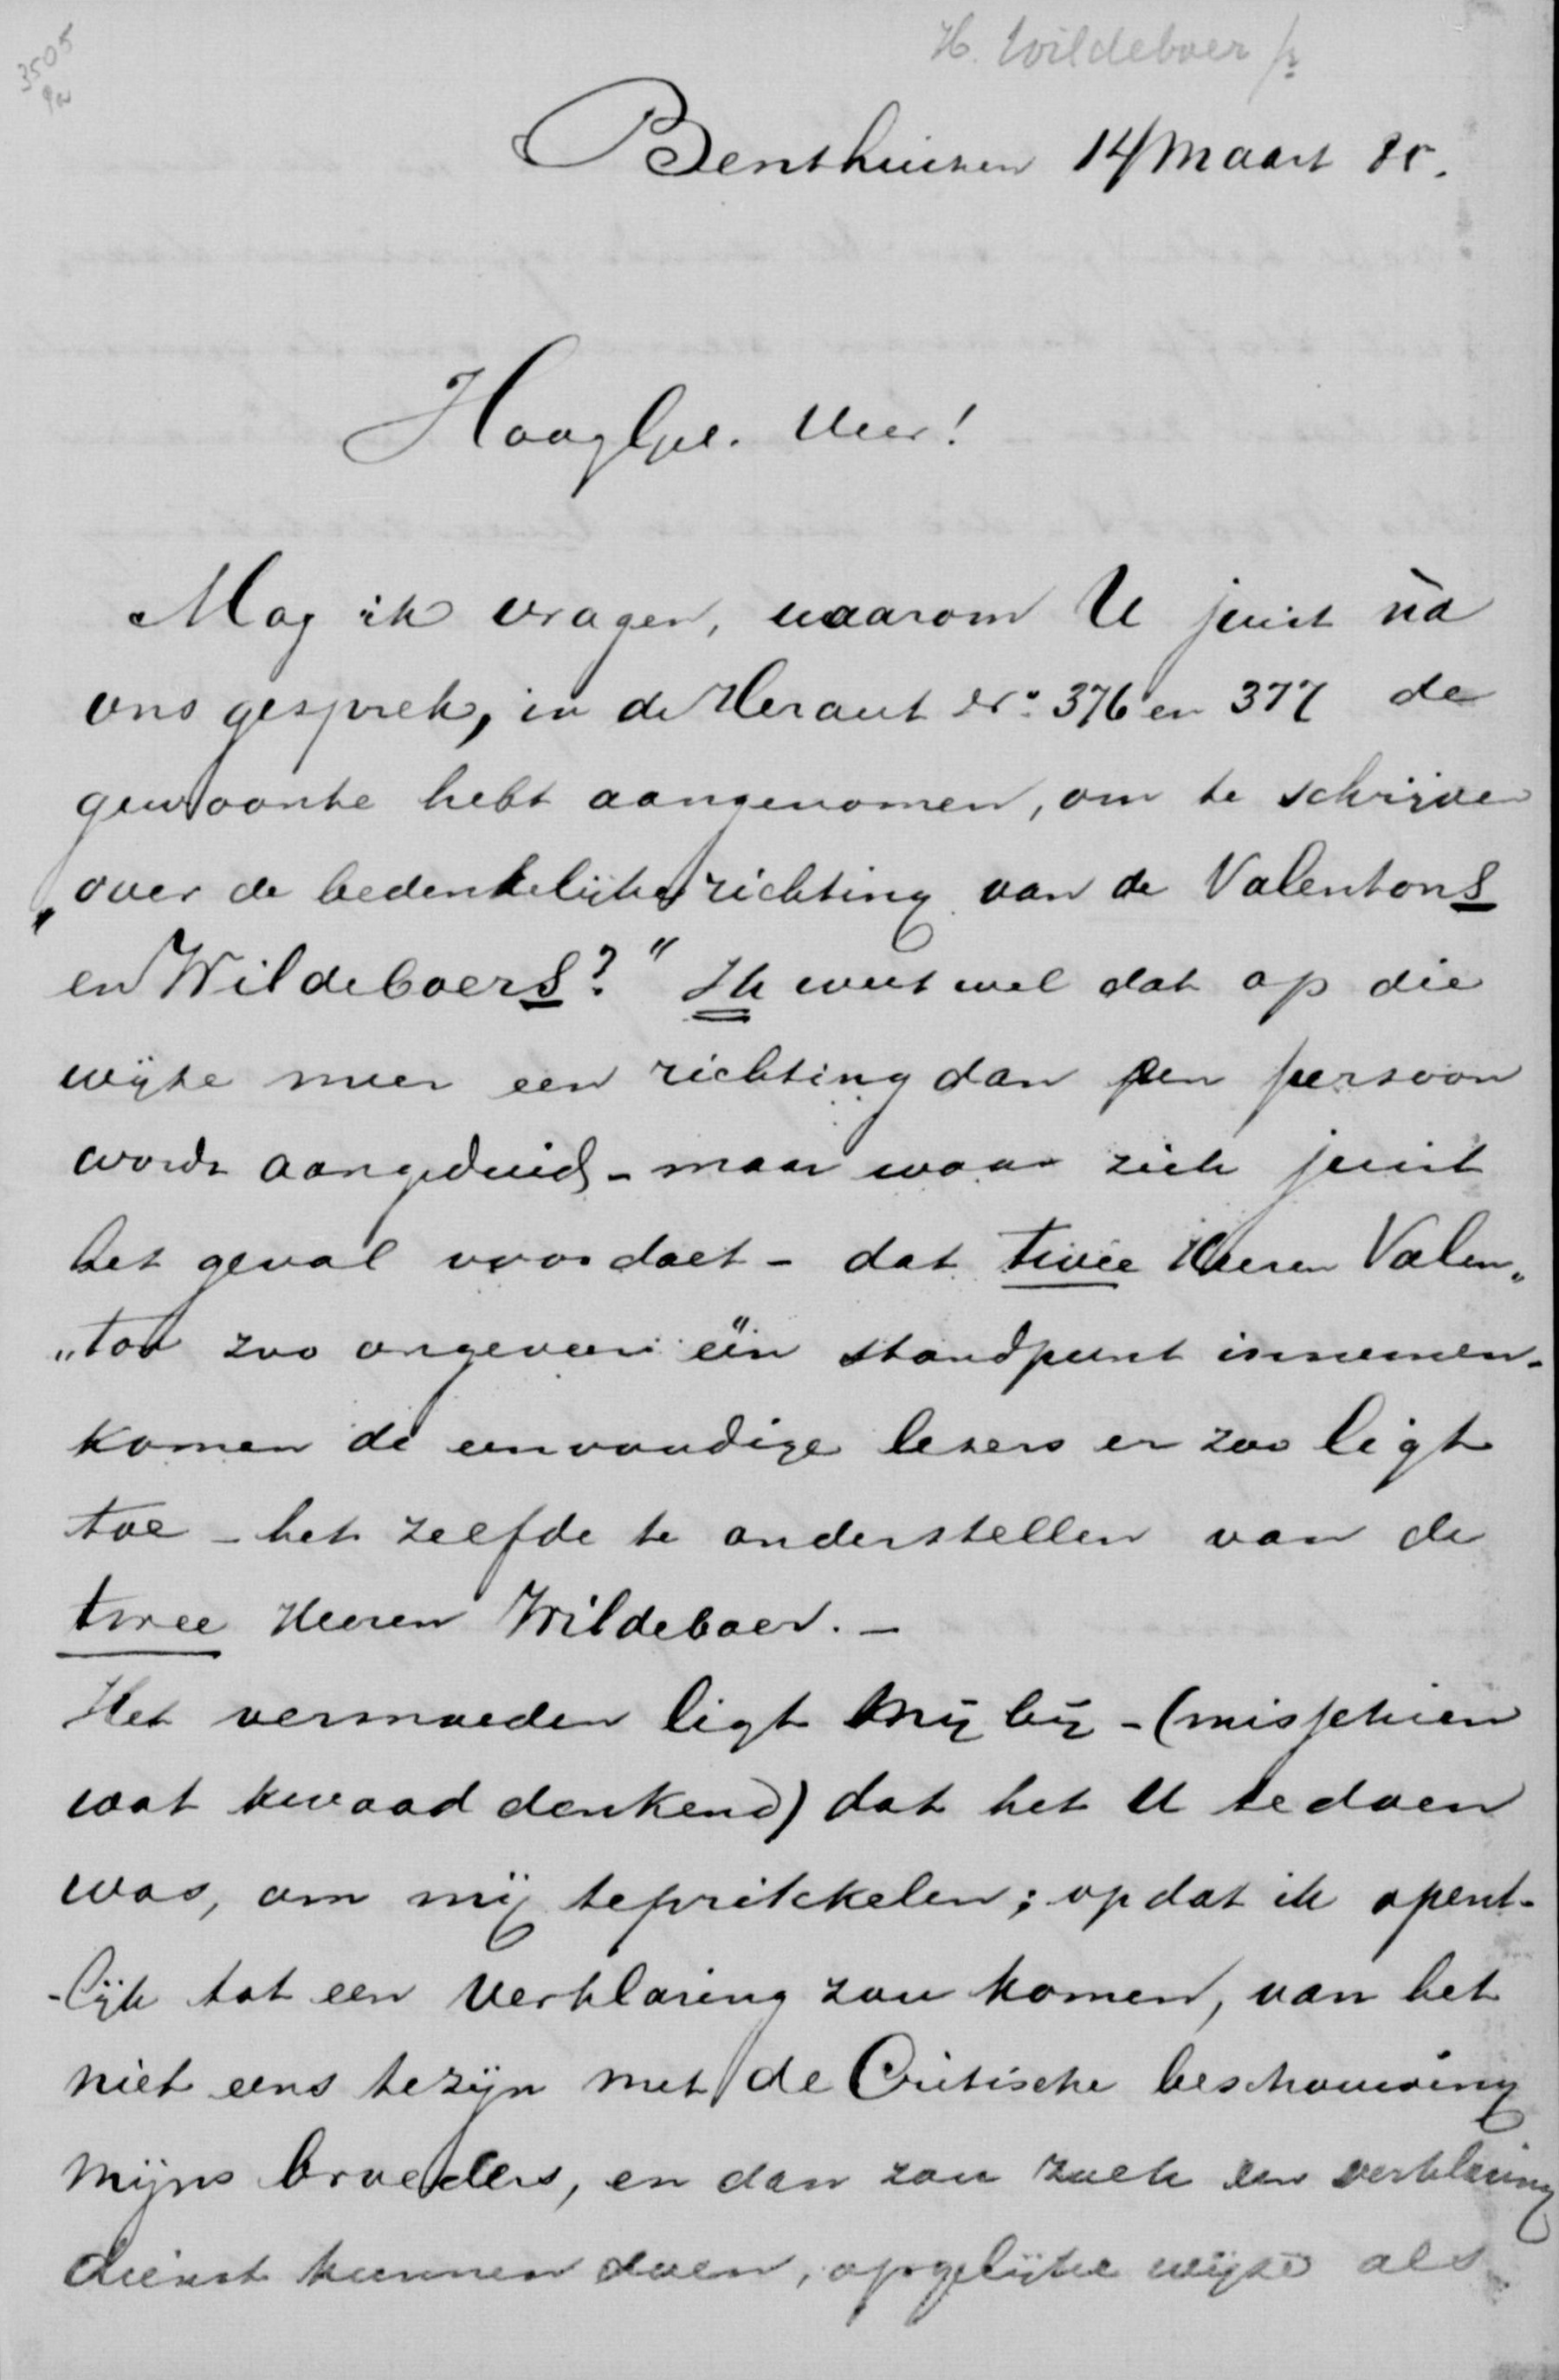 3505
H. Wildeboer jr
Benthuizen 14 Maart 85.
Hooggel. Heer!
Mag ik vragen, waarom U juist nà
ons gesprek, in de Heraut No. 376 en 377 de
gewoonte hebt aangenomen, om te schrijven
„over de bedenkelijke richting van de Valentons
en Wildeboers?" Ik weet wel dat op die
wijze meer een richting dan een persoon
wordt aangeduid - maar waar zich juist
het geval voordoet - dat twee Heeren Valen„
„ton zoo ongeveer één standpunt innemen -
komen de eenvoudige lezers er zoo ligt
toe - het zelfde te onderstellen van de
twee Heeren Wildeboer. -
Het vermoeden ligt mij bij - (misschien
wat kwaad denkend) dat het U te doen
was, om mij te prikkelen; op dat ik opent-
-lijk tot een verklaring zou komen, van het
niet eens te zijn met de Critische beschouwing
mijns broeders, en dan zou zulk een verklaring
dienst kunnen doen, op gelijke wijze als